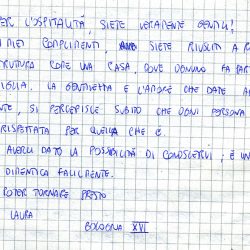 PER L'OSPITALITÀ, SIETE VERAMENTE GENTILI!
MIEI COMPLIMENTI, SIETE RIUSCITI A
STRUTTURA COME UNA CASA, DOVE OGNUNO FA PAR
IGLIA. LA GENTILEZZA E L'AMORE CHE DATE A
NTE, SI PERCEPISCE SUBITO CHE OGNI PERSONA
RISPETTATA PER QUELLA CHE È.
AVERCI DATO LA POSSIBILITÀ DI CONOSCERVI; È UN
DIMENTICA FACILMENTE.
POTER TORNARE PRESTO
LAURA
BOLOGNA XVI